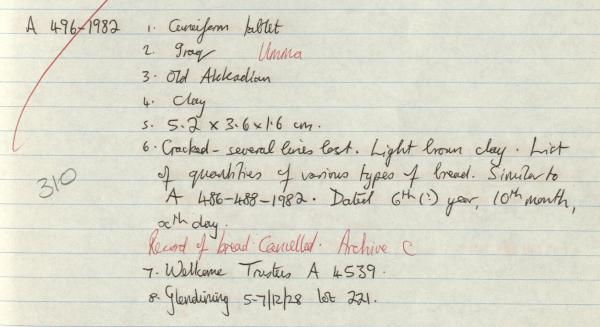 A 496-1982 1. Cuneiform tablet
2. Iraq Umma
3. Old Akkadian
4. Clay
5. 5.2 x 3.6 x 1.6 cm.
6. Cracked - several lines lost. Light brown clay. List
of quantities of various types of bread. Similar to
310 A 486-488-1982. Dated 6th (?) year, 10th month,
xth day.
Record of bread. Cancelled. Archive C
7. Wellcome Trustees A 4539.
8. Glendining 5-7/12/28 lot 221.